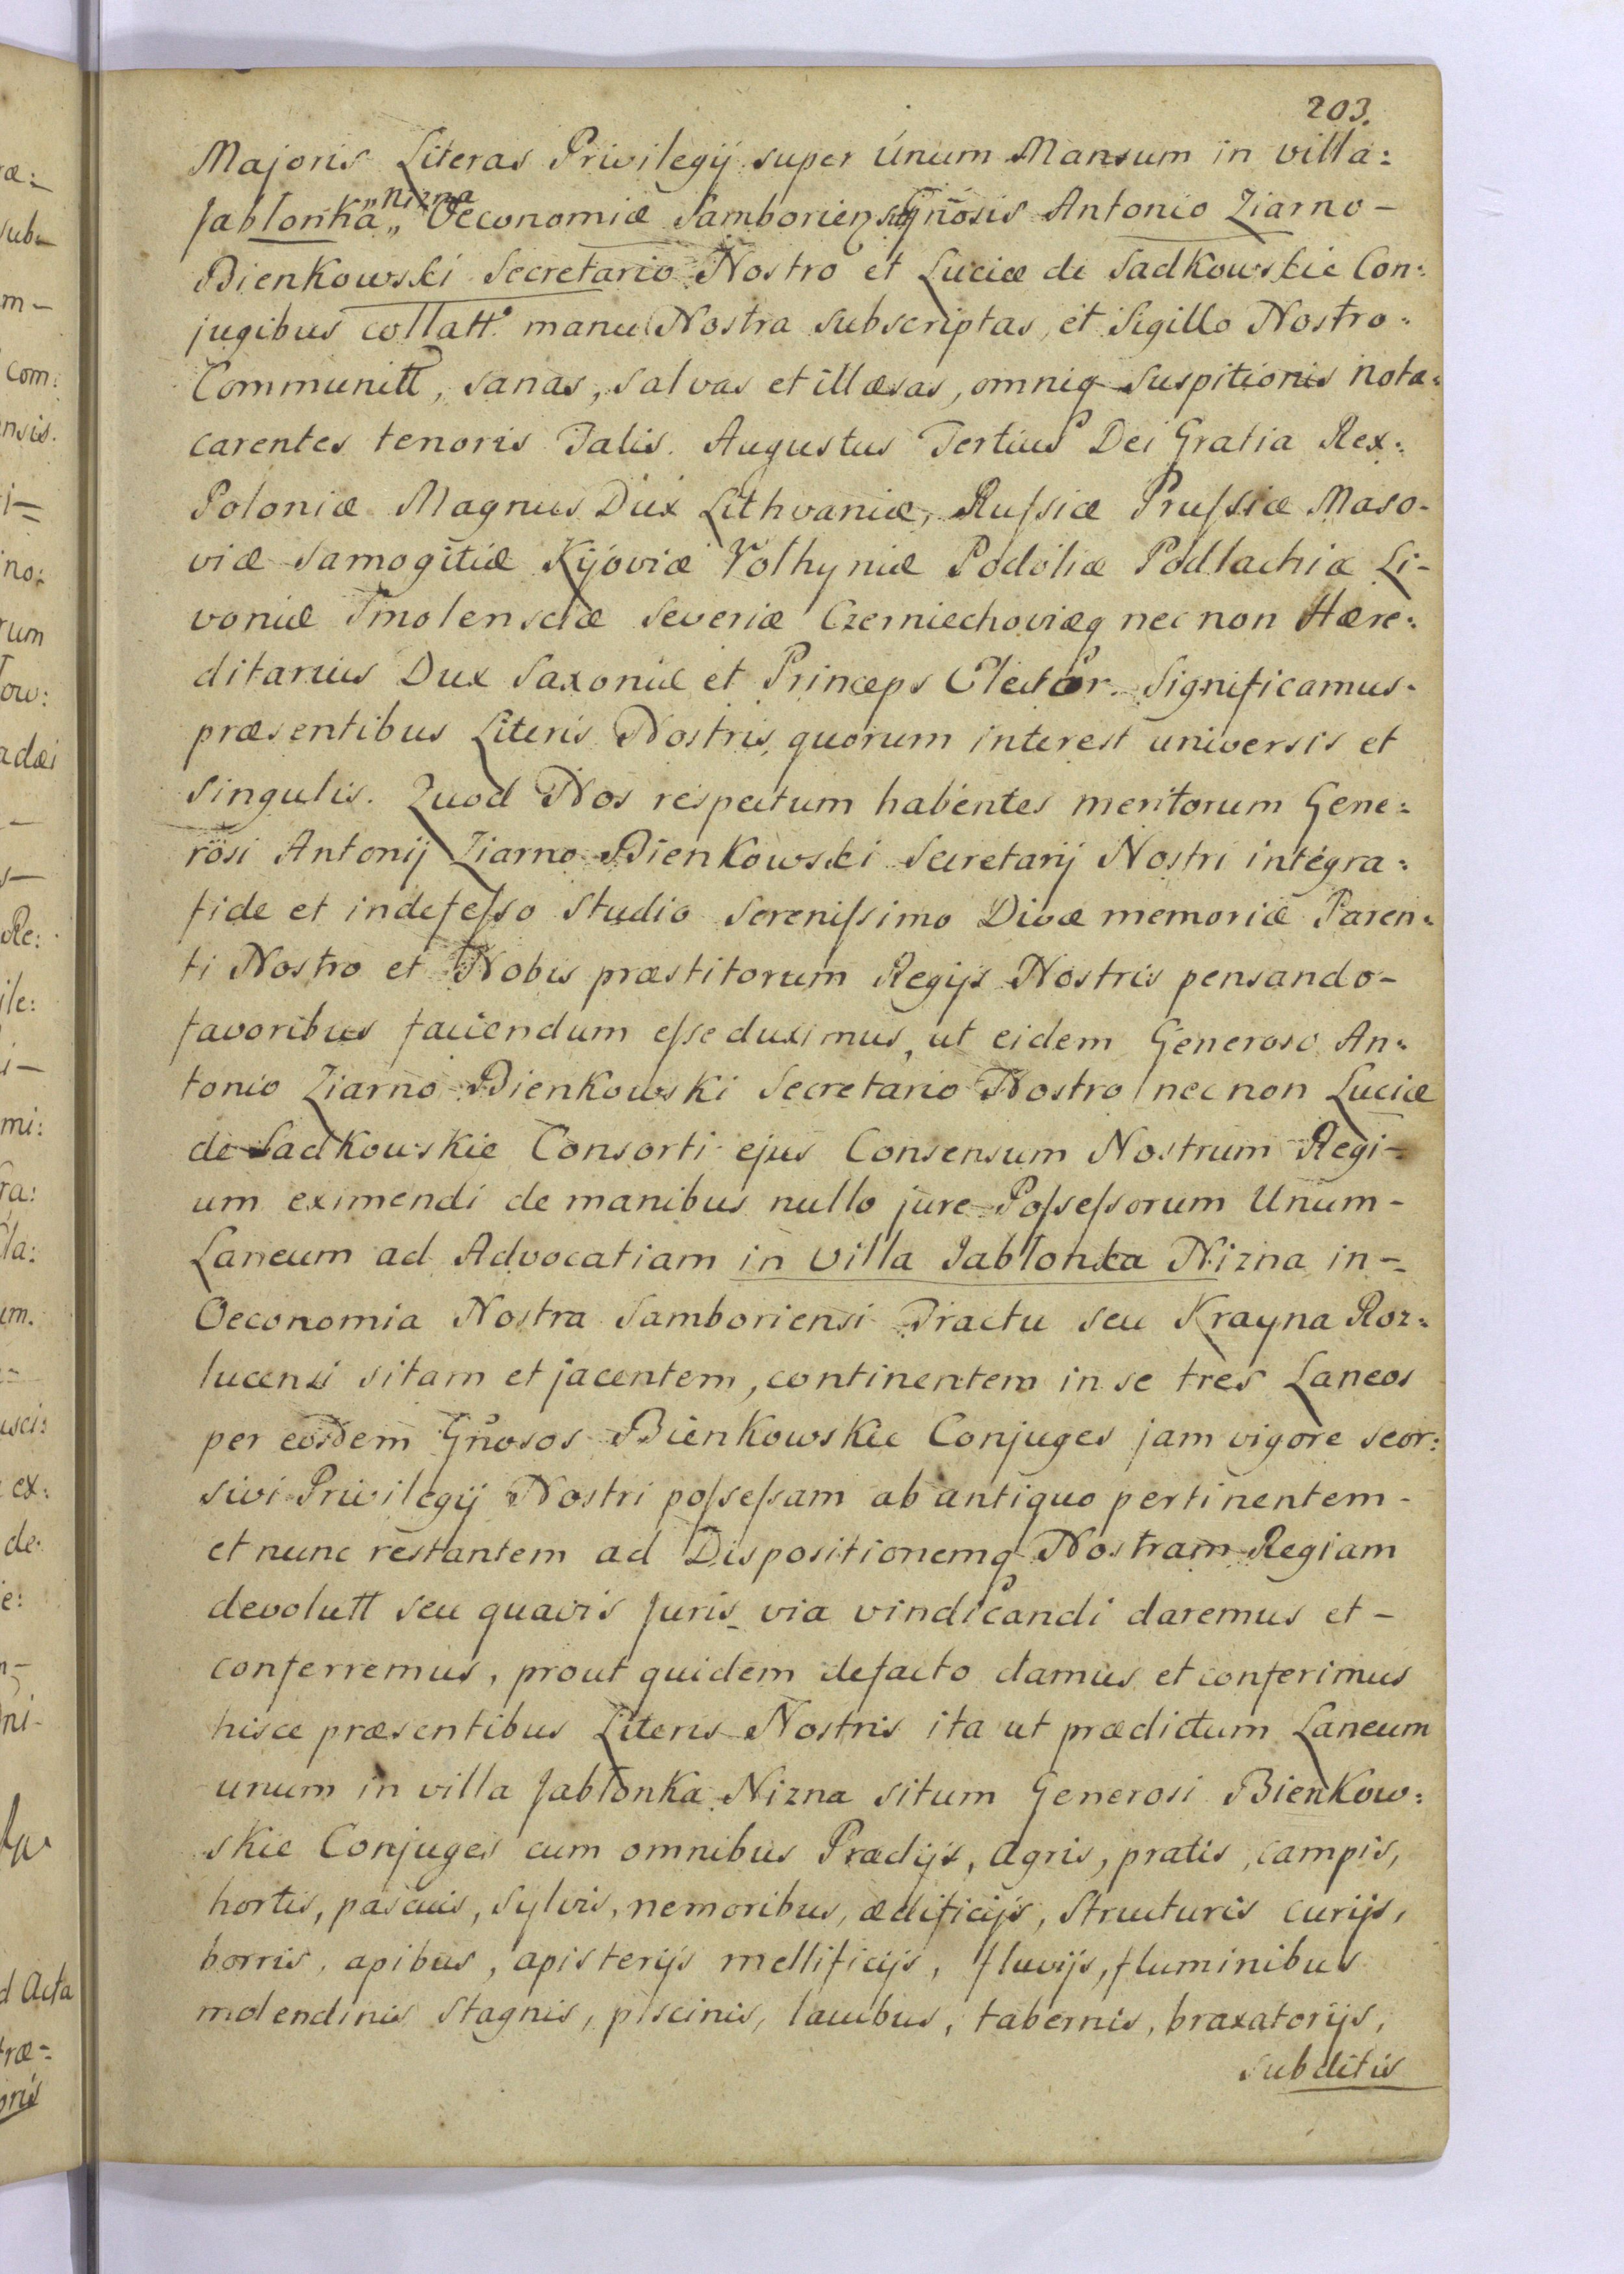 203.
Majoris Literas Privilegij super únum Mansum in villa:
Jablonka „Nizna„ Oeconomiæ Samborien Gñosis Antonio Ziarno-
Bienkowski Secretario Nostro et Luciæ de Sadkowskie Con:
jugibus collatt. manu Nostra subscriptas, et Sigillo Nostro:
Communitt, sanas, salvas et illæsas, omniq suspitionis nota:
carentes tenoris Talis. Augustus Tertius Dei Gratia Rex:
Poloniæ Magnus Dux Lithvaniæ, Ruſsiæ Pruſsiæ Maso-
viæ Samogitiæ Kijoviæ Volhyniæ Podoliæ Podlachiæ Li-
voniæ Smolensciæ Severiæ Czerniechoviæq nec non Hære:
ditarius Dux Saxoniæ et Princeps Elector. Significamus-
præsentibus Literis Nostris, quorum interest universis et
singulis. Quod Nos respectum habentes meritorum Gene:
rosi Antonij Ziarno Bienkowski Secretarij Nostri integra:
fide et indefeſso studio Sereniſsimo Divæ memoriæ Paren-
ti Nostro et Nobis præstitorum Regijs Nostris pensando-
favoribus faciendum eſse duximus, ut eidem Generoso An-
tonio Ziarno Bienkowski Secretario Nostro nec non Luciæ
de Sadkowskie Consorti ejus Consensum Nostrum Regi-
um eximendi de manibus nullo jure Poſseſsorum Unum-
Laneum ad Advocatiam in villa Jablonka Nizna in-
Oeconomia Nostra Samboriensi Tractu seu Krayna Roz:
lucensi sitam et jacentem, continentem in se tres Laneos
per eosdem Gñosos Bienkowskie Conjuges jam vigore seor:
sivi Privilegij Nostri poſseſsam ab antiquo pertinentem-
et nunc restantem ad Dispositionemq Nostram Regiam
devolutt seu quavis Juris via vindicandi daremus et-
conferremus, prout quidem defacto damus et conferimus
hisce præsentibus Literis Nostris ita ut prædictum Laneum
unum in villa Jablonka Nizna situm Generosi Bienkow:
skie Conjuges cum omnibus Prædijs, agris, pratis, campis,
hortis, pascuis, sylvis, nemoribus, ædificijs, structuris curijs,
horris, apibus, apisterijs mellificijs, fluvijs, fluminibus
molendinis stagnis, piscinis, lacubus, tabernis, braxatorijs,
subditis